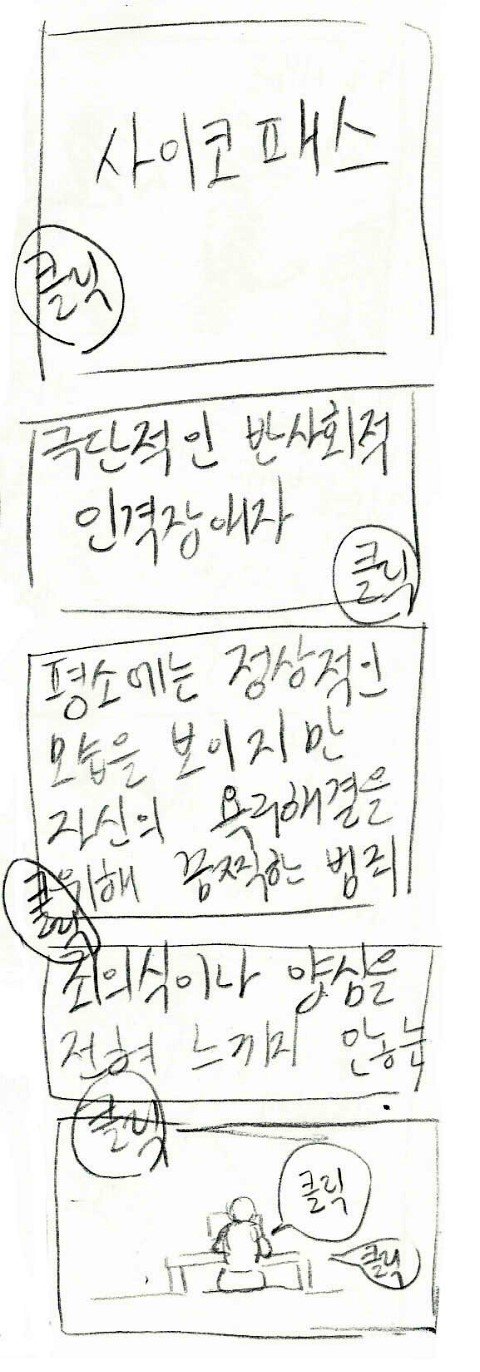 사이코패스
클릭
극단적인 반사회적
인격장애자
클릭
평소에는 정상적인
모습을 보이지만
자신의 욕구해결을
위해 끔찍한 범죄
클릭
죄의식이나 양심을
전혀 느끼지 않는
클릭
클릭
클릭